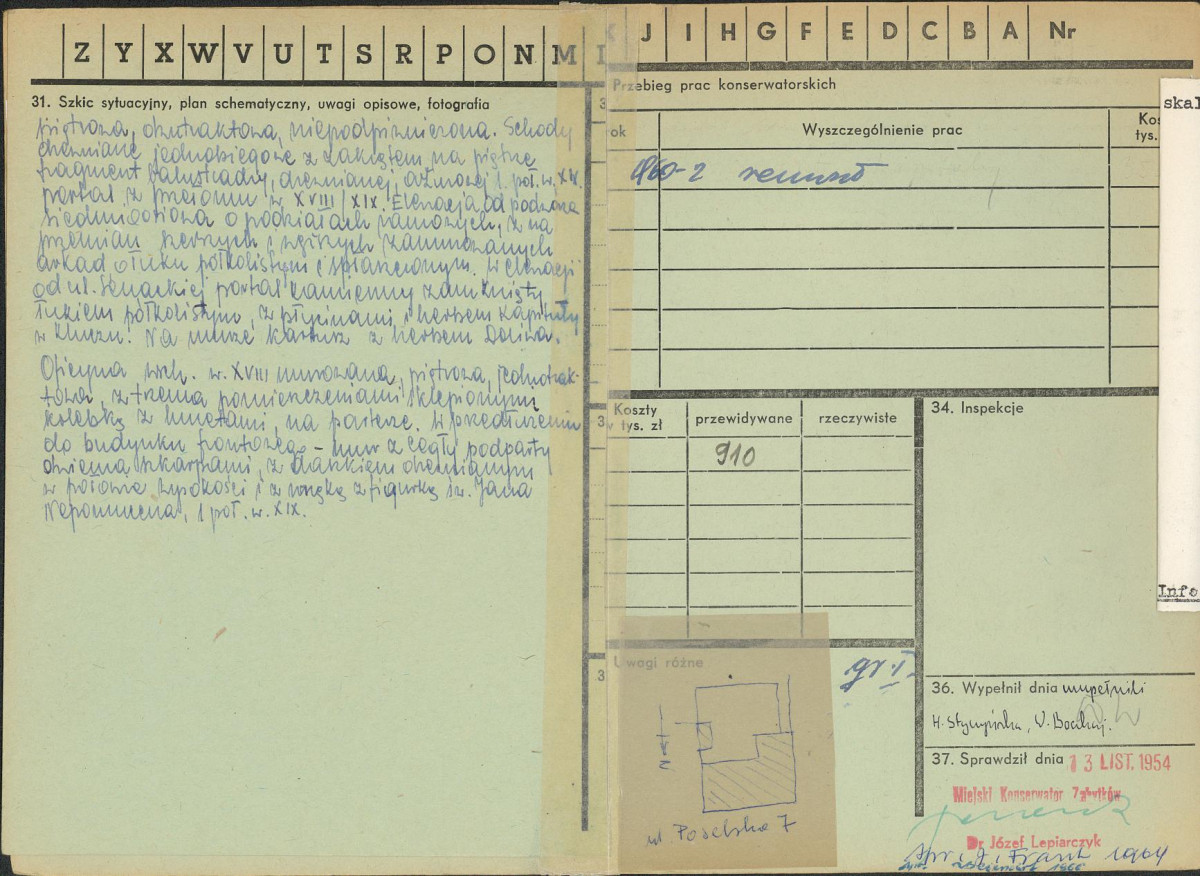 Z Y X W V U T S R P O N M
J I H G F E D C B A Nr
31. Szkic sytuacyjny, plan schematyczny, uwagi opisowe, fotografia
piętrowa, dwutraktowa, niepodpiwniczona. Schody
drewniane jednobiegowe z zakrętem na piętrze
fragment balustrady, drewnianej, ażurowej 1 poł. w. XIX.
portal z przełomu w. XVIII/XIX. Elewacja od podwórza
siedmioosiowa o podziałach ramowych, z na
przemian szerszych i węższych zamurowanych
arkad o łuku półkolistym i spłaszczonym. W elewacji
od ul. Senackiej portal kamienny zamknięty
łukiem półkolistym, z płycinami i herbem Kapituły
w kluczu. Na murze kartusz z herbem Doliwa.
Oficyna wsch. w. XVIII murowana, piętrowa, jednotrak-
towa, z trzema pomieszczeniami sklepionymi
kolebką z lunetami, na parterze. W przedłużeniu
do budynku frontowego - mur z cegły podparty
dwiema szkarpami, z daszkiem drewnianym
w połowie wysokości i z wnęką z figurką św. Jana
Nepomucena, 1 poł. w. XIX.
Przebieg prac konserwatorskich
ok
Wyszczególnienie prac
tys.
1960-2 remont
Koszty
tys. zł
przewidywane
rzeczywiste
910
34. Inspekcje
Uwagi różne
gr. I
N
ul. Poselska 7
36. Wypełnił dnia wypełniki
37. Sprawdził dnia 13 LIST. 1954
Miejski Konserwator Zabytków
Dr Józef Lepiarczyk
spr. J. Frank 1964
skal
Info